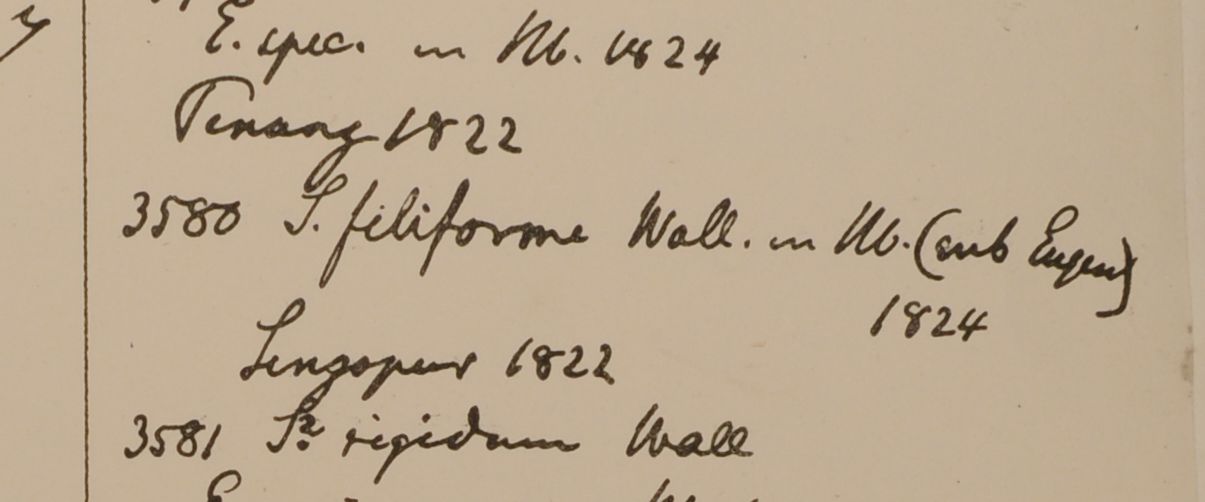 E. spec. in Hb. 1824
Penang 1822
3580 S. filiforme Wall. in Hb. (sub Eugen)
1824
Singapur 1822
3581 S? rigidum Wall